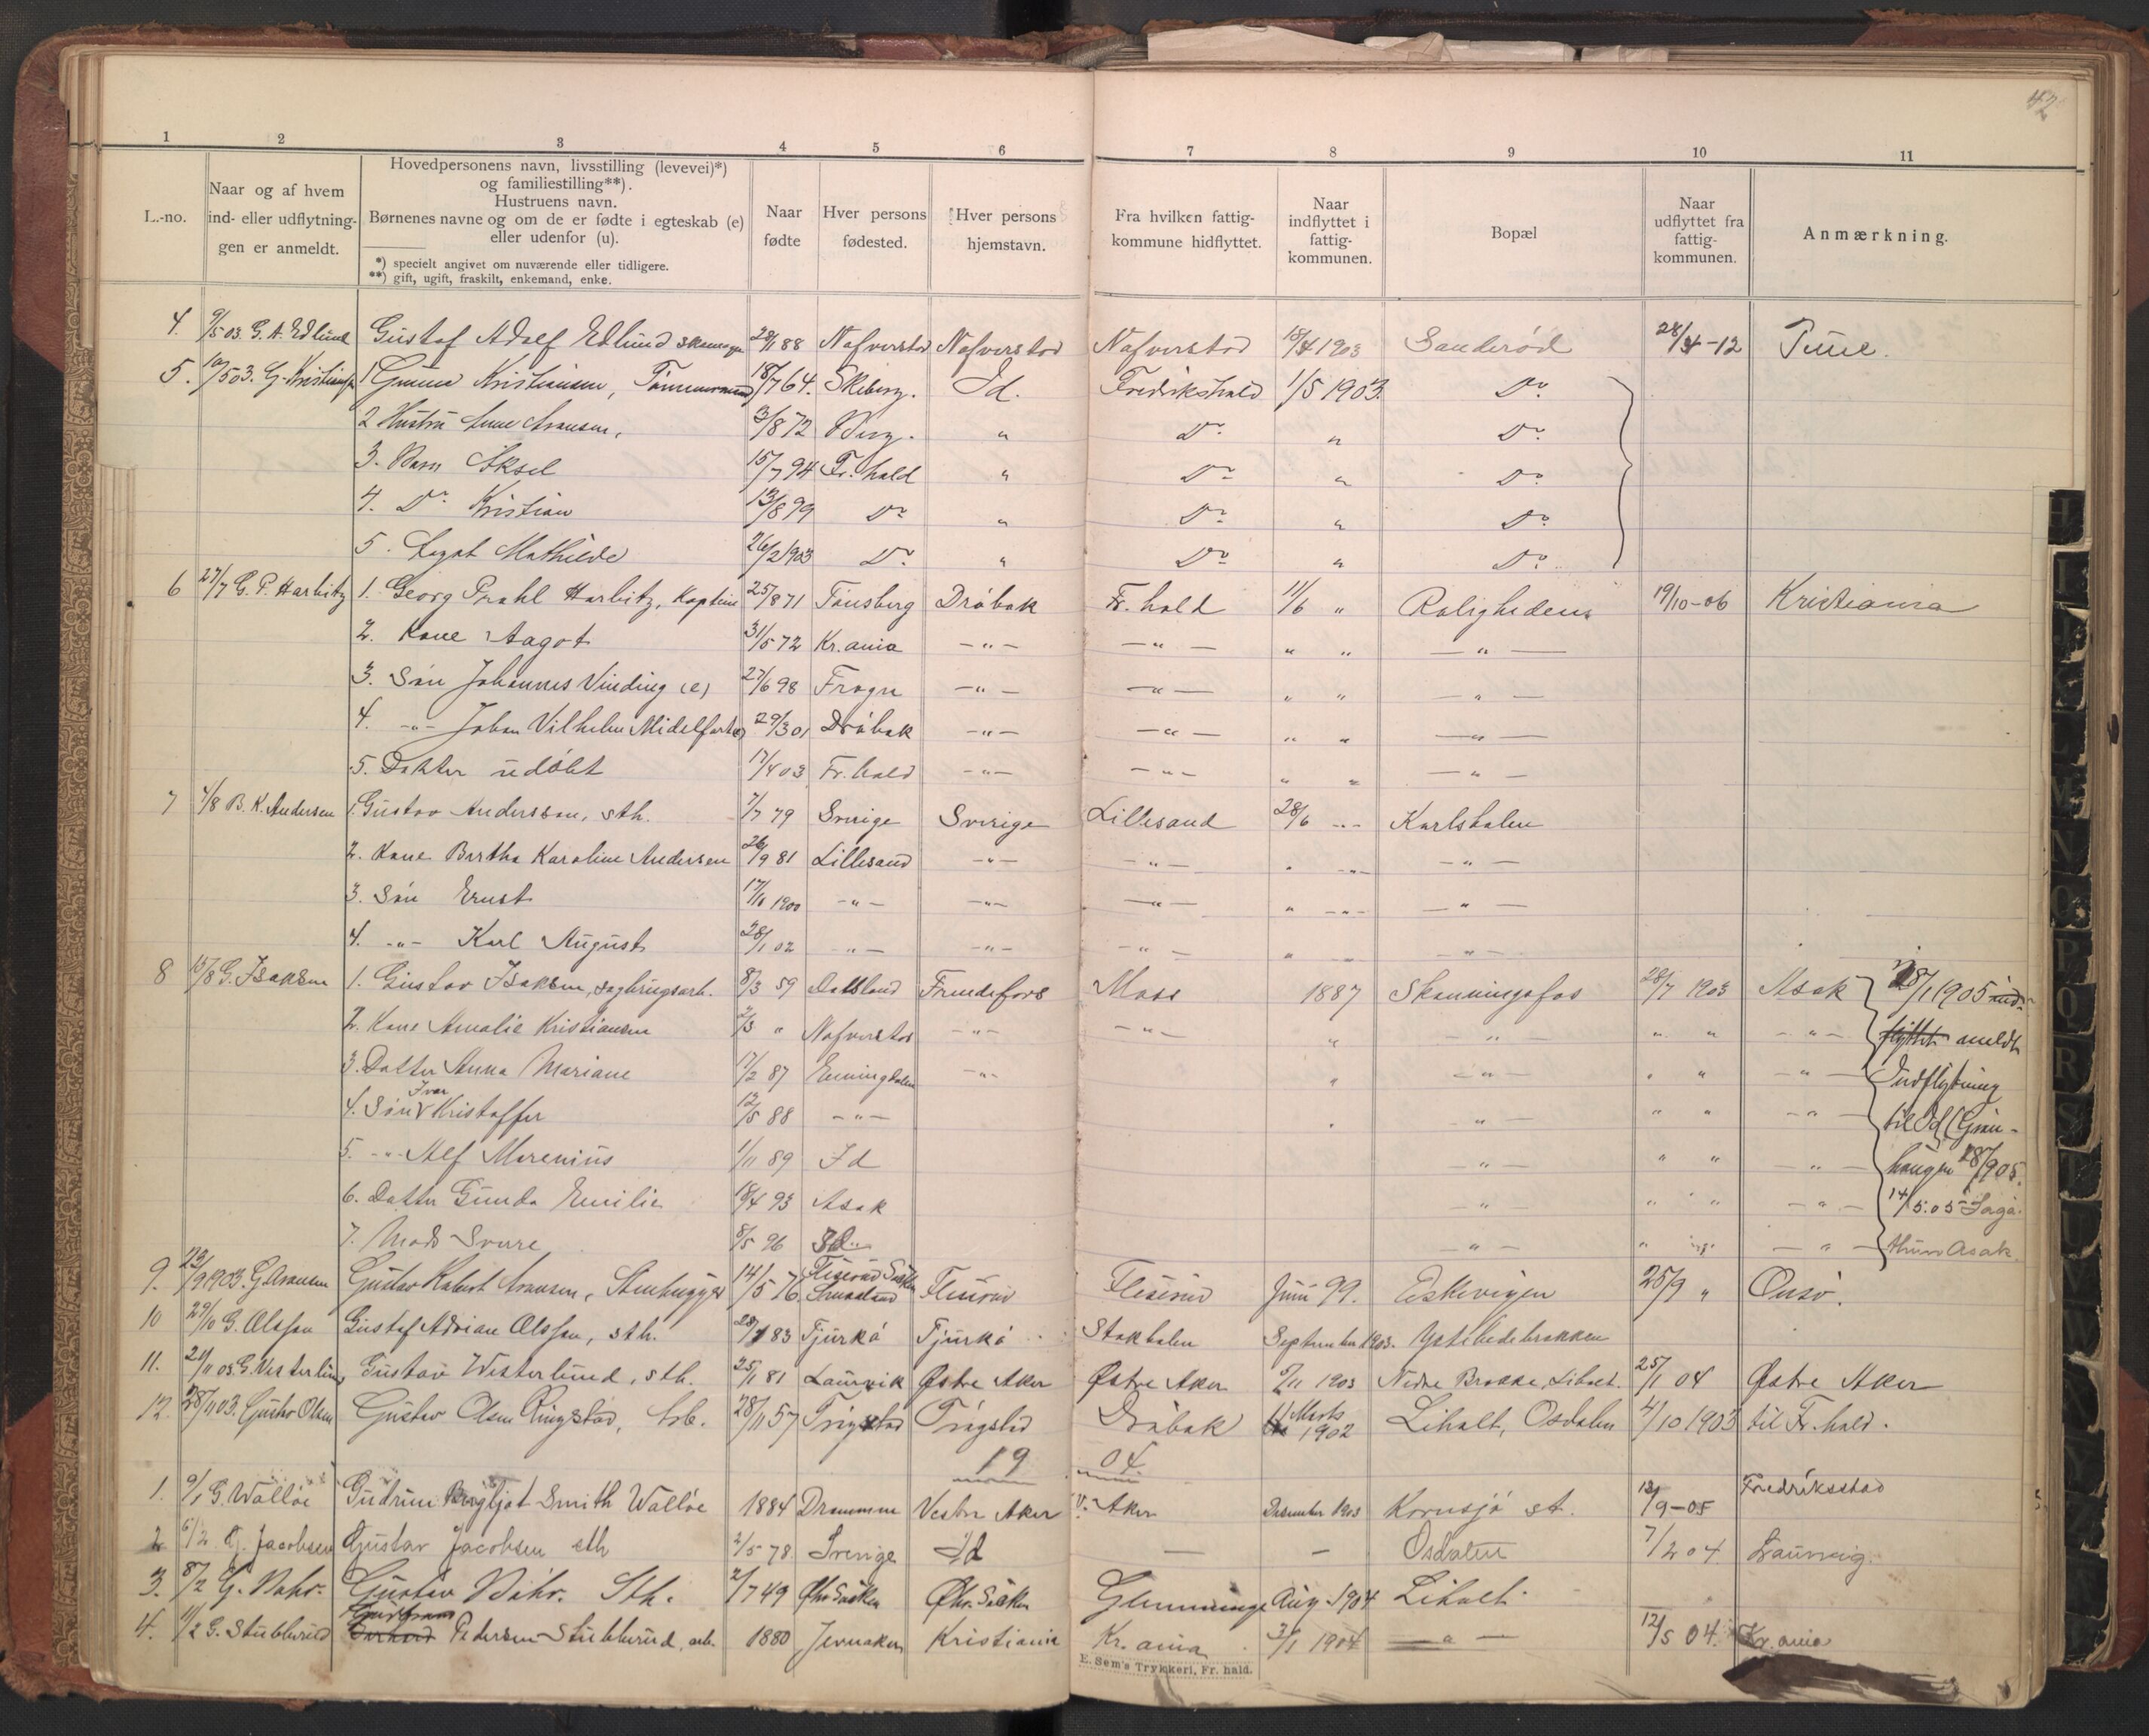 42
1 2 3 4 5 6 7 8 9 10 11
L.-no.
Naar og af hvem
ind- eller udflytnin-
gen er anmeldt.
Hovedpersonens navn, livsstilling (levevei)*)
og familiestilling**).
Hustruens navn.
Børnenes navne og om de er fødte i egteskab (e)
eller udenfor (u).
*) specielt angivet om nuværende eller tidligere.
**) gift, ugift, fraskilt, enkemand, enke.
Naar
fødte
Hver persons
fødested.
Hver persons
hjemstavn.
Fra hvilken fattig-
kommune hidflyttet.
Naar
indflyttet i
fattig-
kommunen.
Bopæl
Naar
udflyttet fra
fattig-
kommunen.
Anmærkning.
4. 9/5 03. G. A. Edlund Gustaf Adolf Edlund 88 Nafverstad Nafverstad Nafverstad 18/4 1903 Sanderød 28/4-12
5. 10/5 03. G. Kristiansen 1 Kristiansen, Tømmermand 18/7 64. Skeberg. Id. Fredrikshald 1/5 1903. Do
2 Hustru 3/8 72 Berg. " Do " Do
3. Barn Aksel 15/7 94 Fr. hald " Do " Do
4. Do Kristian 13/8 99 Do " Do " Do
5. Mathilde 26/2 1903 Do " Do " Do
6 27/7 G. P. Harbitz 1. Georg Prahl Harbitz, Kaptein 25/8 71 Tønsberg Drøbak Fr. hald 11/6 " Roligheden 19/10-06 Kristiania
2. Kone Aagot 31/5 72 Kr.ania -"- -"- " " -"-
3. Søn Johannes Vinding (e) 27/6 98 Frogn -"- -"- " " -"-
4. -"- Johan Vilhelm Midelfart (e) 29/3 01 Drøbak -"- -"- " " -"-
5. Datter udøbt 17/4 03 Fr. hald -"- -"- " " -"-
7 4/8 B. K. Andersen 1. Gustav Andersson, sth. 7/7 79 Sverige Sverige Lillesand 28/6 -"- Karlsdalen
2. Kone Bertha Karoline Andersen 26/9 81 Lillesand -"- -"- " -"- -"-
3. Søn Ernst 1900 -"- -"- -"- " -"- -"-
4. -"- Karl August 28/1 02 -"- -"- -"- " -"- -"-
8 15/8 G. Isaksen 1. Gustav Isaksen, 8/3 59 Dalsland Moss 1887 Skonningsfos 28/7 1903 Asak 28/1 1905 ind-
2. Kone Amalie Kristiansen 2/3 " Nafverstad -"- -"- " -"- " " -"- flyttet anmeldt
3. Datter Anna Mariane 17/2 87 Enningdalen -"- " -"- " " -"- Indflytning
4. Søn Ivar Kristoffer 12/5 88 -"- " -"- " " -"- til Id (Grøn-
5. -"- Alf Marenius 1/11 89 Id -"- " " -"- haugen 28/1 905.
6. Datter Gunda Emilie 18/4 93 Asak -"- " " -"- 14/5.05
7. Mads Sverre 8/5 96 Id -"- " " -"- Asak
9. 1903. G. Aronsen Gustav Robert Aronsen, Stenhugger 14/5 76. Juni 99. Eskevigen 25/9 " Onsø.
10 29/10 G. Olsson Gustaf Adrian Olsson, sth. 83 Tjurkö Tjurkö Stakbalen September 1903.
11. 21/11 03. G. Westerlund Gustav Westerlund, sth. 25/1 81 Laurvik Østre Aker Østre Aker 1903 Nedre Brakke, Liholt 25/1 04 Østre Aker
12. 28/11 03. Gustav Olsen Gustav Olsen Ringstad, Arb. 28/11 57 Trøgstad Trøgstad Drøbak Marts 1902 Liholt, Osdalen 4/10 1903 til Fr. hald.
19 04.
1. 9/1 G. Walløe Gudrun Bergljot Smith Walløe 1884 Drammen Vestre Aker V. Aker Desember 1903 Kornsjø st. 13/9-05 Fredriksstad
2 6/2 G. Jacobsen Gustav Jacobsen sth 2/5 78. Sverige Id — — Osdalen 7/2 04 Laurvig.
3. 8/2 G. Gustav Sth. 2/7 49 Glemminge Aug. 1904 Liholt
4. 11/2 G. Stubberud Pedersen Stubberud, arb. 1880 Jevnaker Kristiania Kr. ania 3/1 1904 -"- 12/5 04. Kr. ania
E. Sem's Trykkeri, Fr. hald.